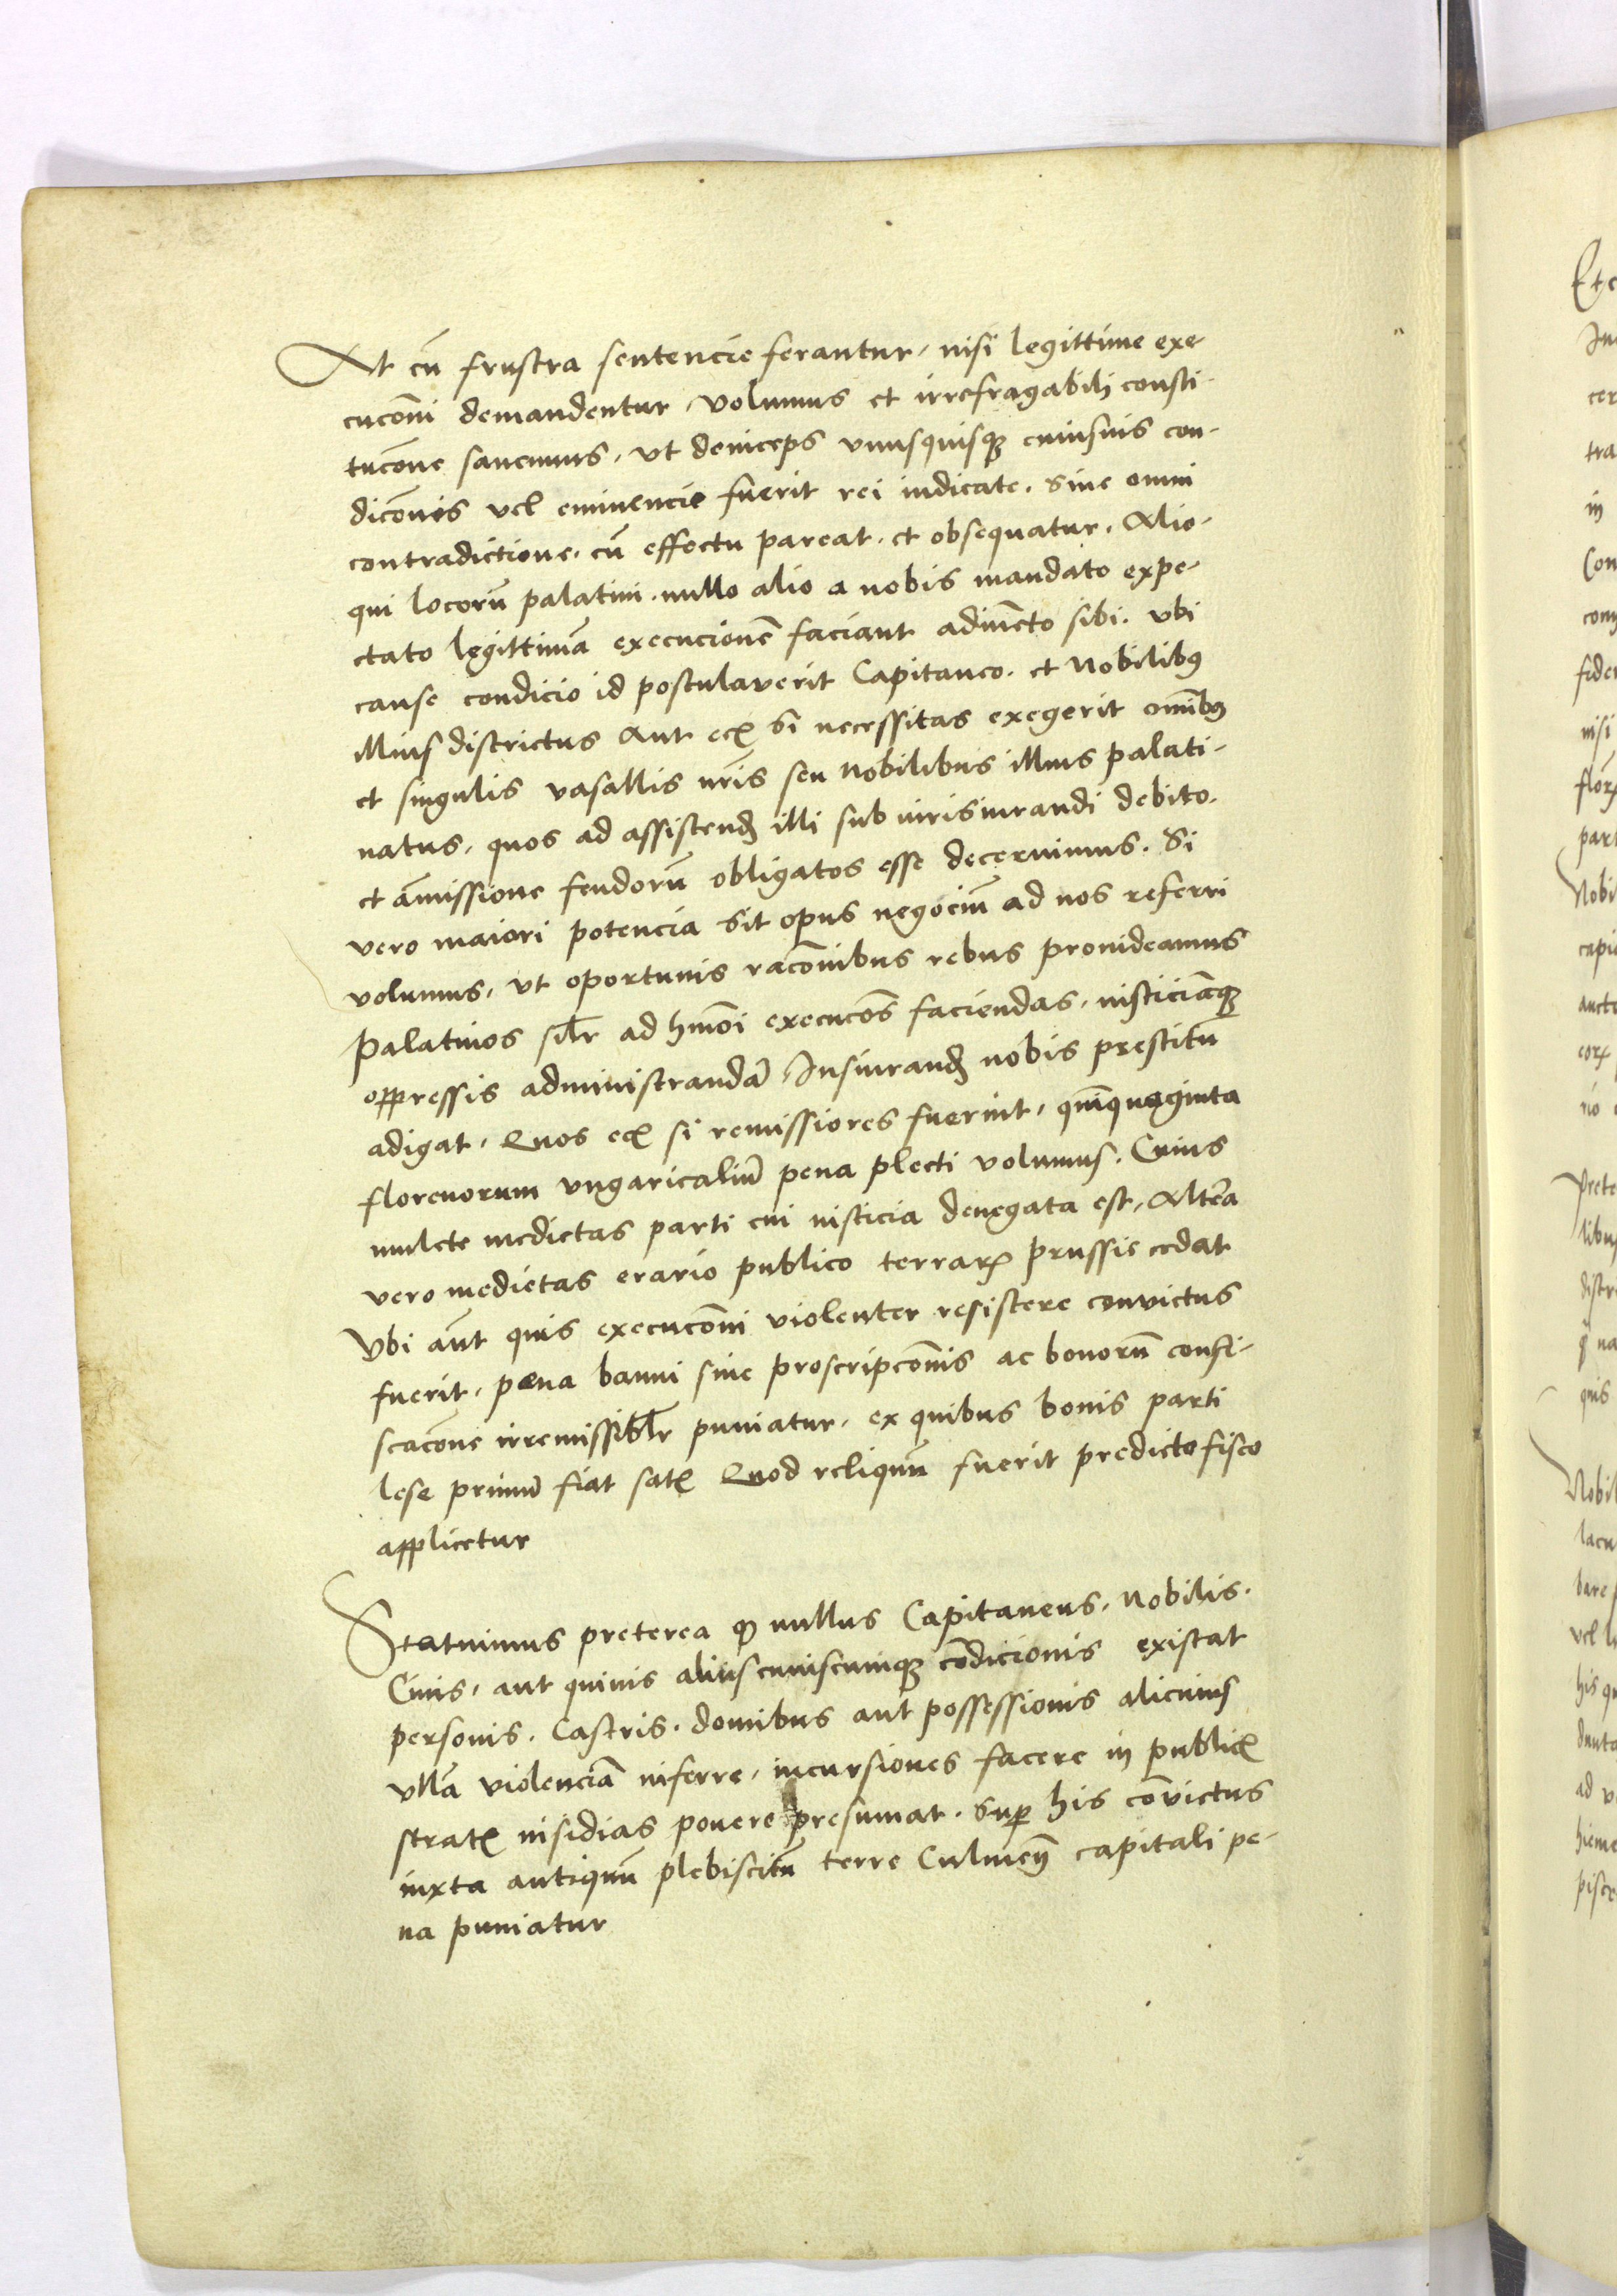 At cū frustra sentencie ferantur, nisi legittime exe-
cucōni demandentur, volumus et irrefragabili consti-
tucōne sancimus, vt deinceps vnusquisqꝫ cuiusuis con-
dicōnis vel eminencie fuerit rei iudicate. sine omni
contradictione. cū effectu pareat. et obsequatur. Alio-
qui locorū palatini. nullo alio a nobis mandato expe-
ctato legittimā execucionē faciant adiūcto sibi. vbi
cause condicio id postulaverit Capitaneo. et Nobilibꝰ
illius districtus Aut ecꝫ si necessitas exegerit oīnibꝰ
et singulis vasallis nr̄is seu Nobilibus illius palati-
natus, quos ad assistendꝫ illi sub iurisiurandi debito.
et amissione feudorū obligatos esse decernimus. Si
vero maiori potencia sit opus negociū ad nos referri
volumus, vt oportunis racōnibus rebus prouideamus
Palatinos sil̄r ad hmōi execucōēs faciendas, iusticiāqꝫ
oppressis administrandā Iusiurandꝫ nobis prestitū
adigat. Quos ecꝫ si remissiores fuerint, quīquaginta
florenorum vngaricaliū pena plecti volumus. Cuius
mulcte medietas parti cui iusticia denegata est, Altera
vero medietas erario publico terrarꝫ prussie cedat
Vbi aūt quis execucōni violenter resistere convictus
fuerit, pena banni siue proscripcōnis ac bonorū confi-
scacōne irremissibl̄r puniatur, ex quibus bonis parti
lese primū fiat satꝫ Quod reliquū fuerit predicto fisco
applicetur
Statuimus preterea ꝙ nullus Capitaneus, Nobilis.
Ciuis, aut quiuis alius cuiuscumqꝫ cōdicionis existat
personis. Castris. domibus aut possessionis alicuius
vllā violenciā inferre, incursiones facere in publicꝫ
stratꝫ insidias ponere presumat. Suꝑ his cōvictus
iuxta antiquū plebiscitū terre Culmeñ capitali pe-
na puniatur